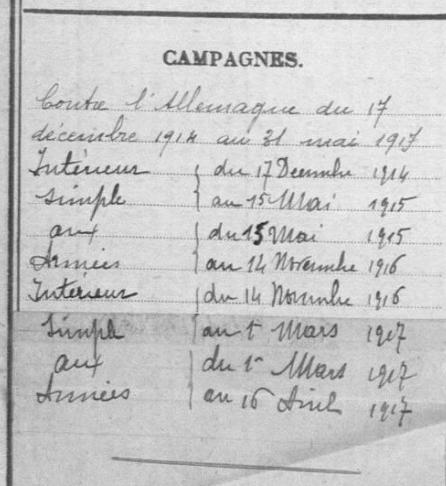 CAMPAGNES.
Contre l'Allemagne du 17
décembre 1914 au 31 mai 1917
Intérieur } du 17 Décembre 1914
simple } au 15 Mai 1915
aux } du 15 Mai 1915
Armées } au 14 Novembre 1916
Interieur } du 14 Novembre 1916
simple } au 1r Mars 1917
aux } du 1r Mars 1917
Armées } au 16 Avril 1917